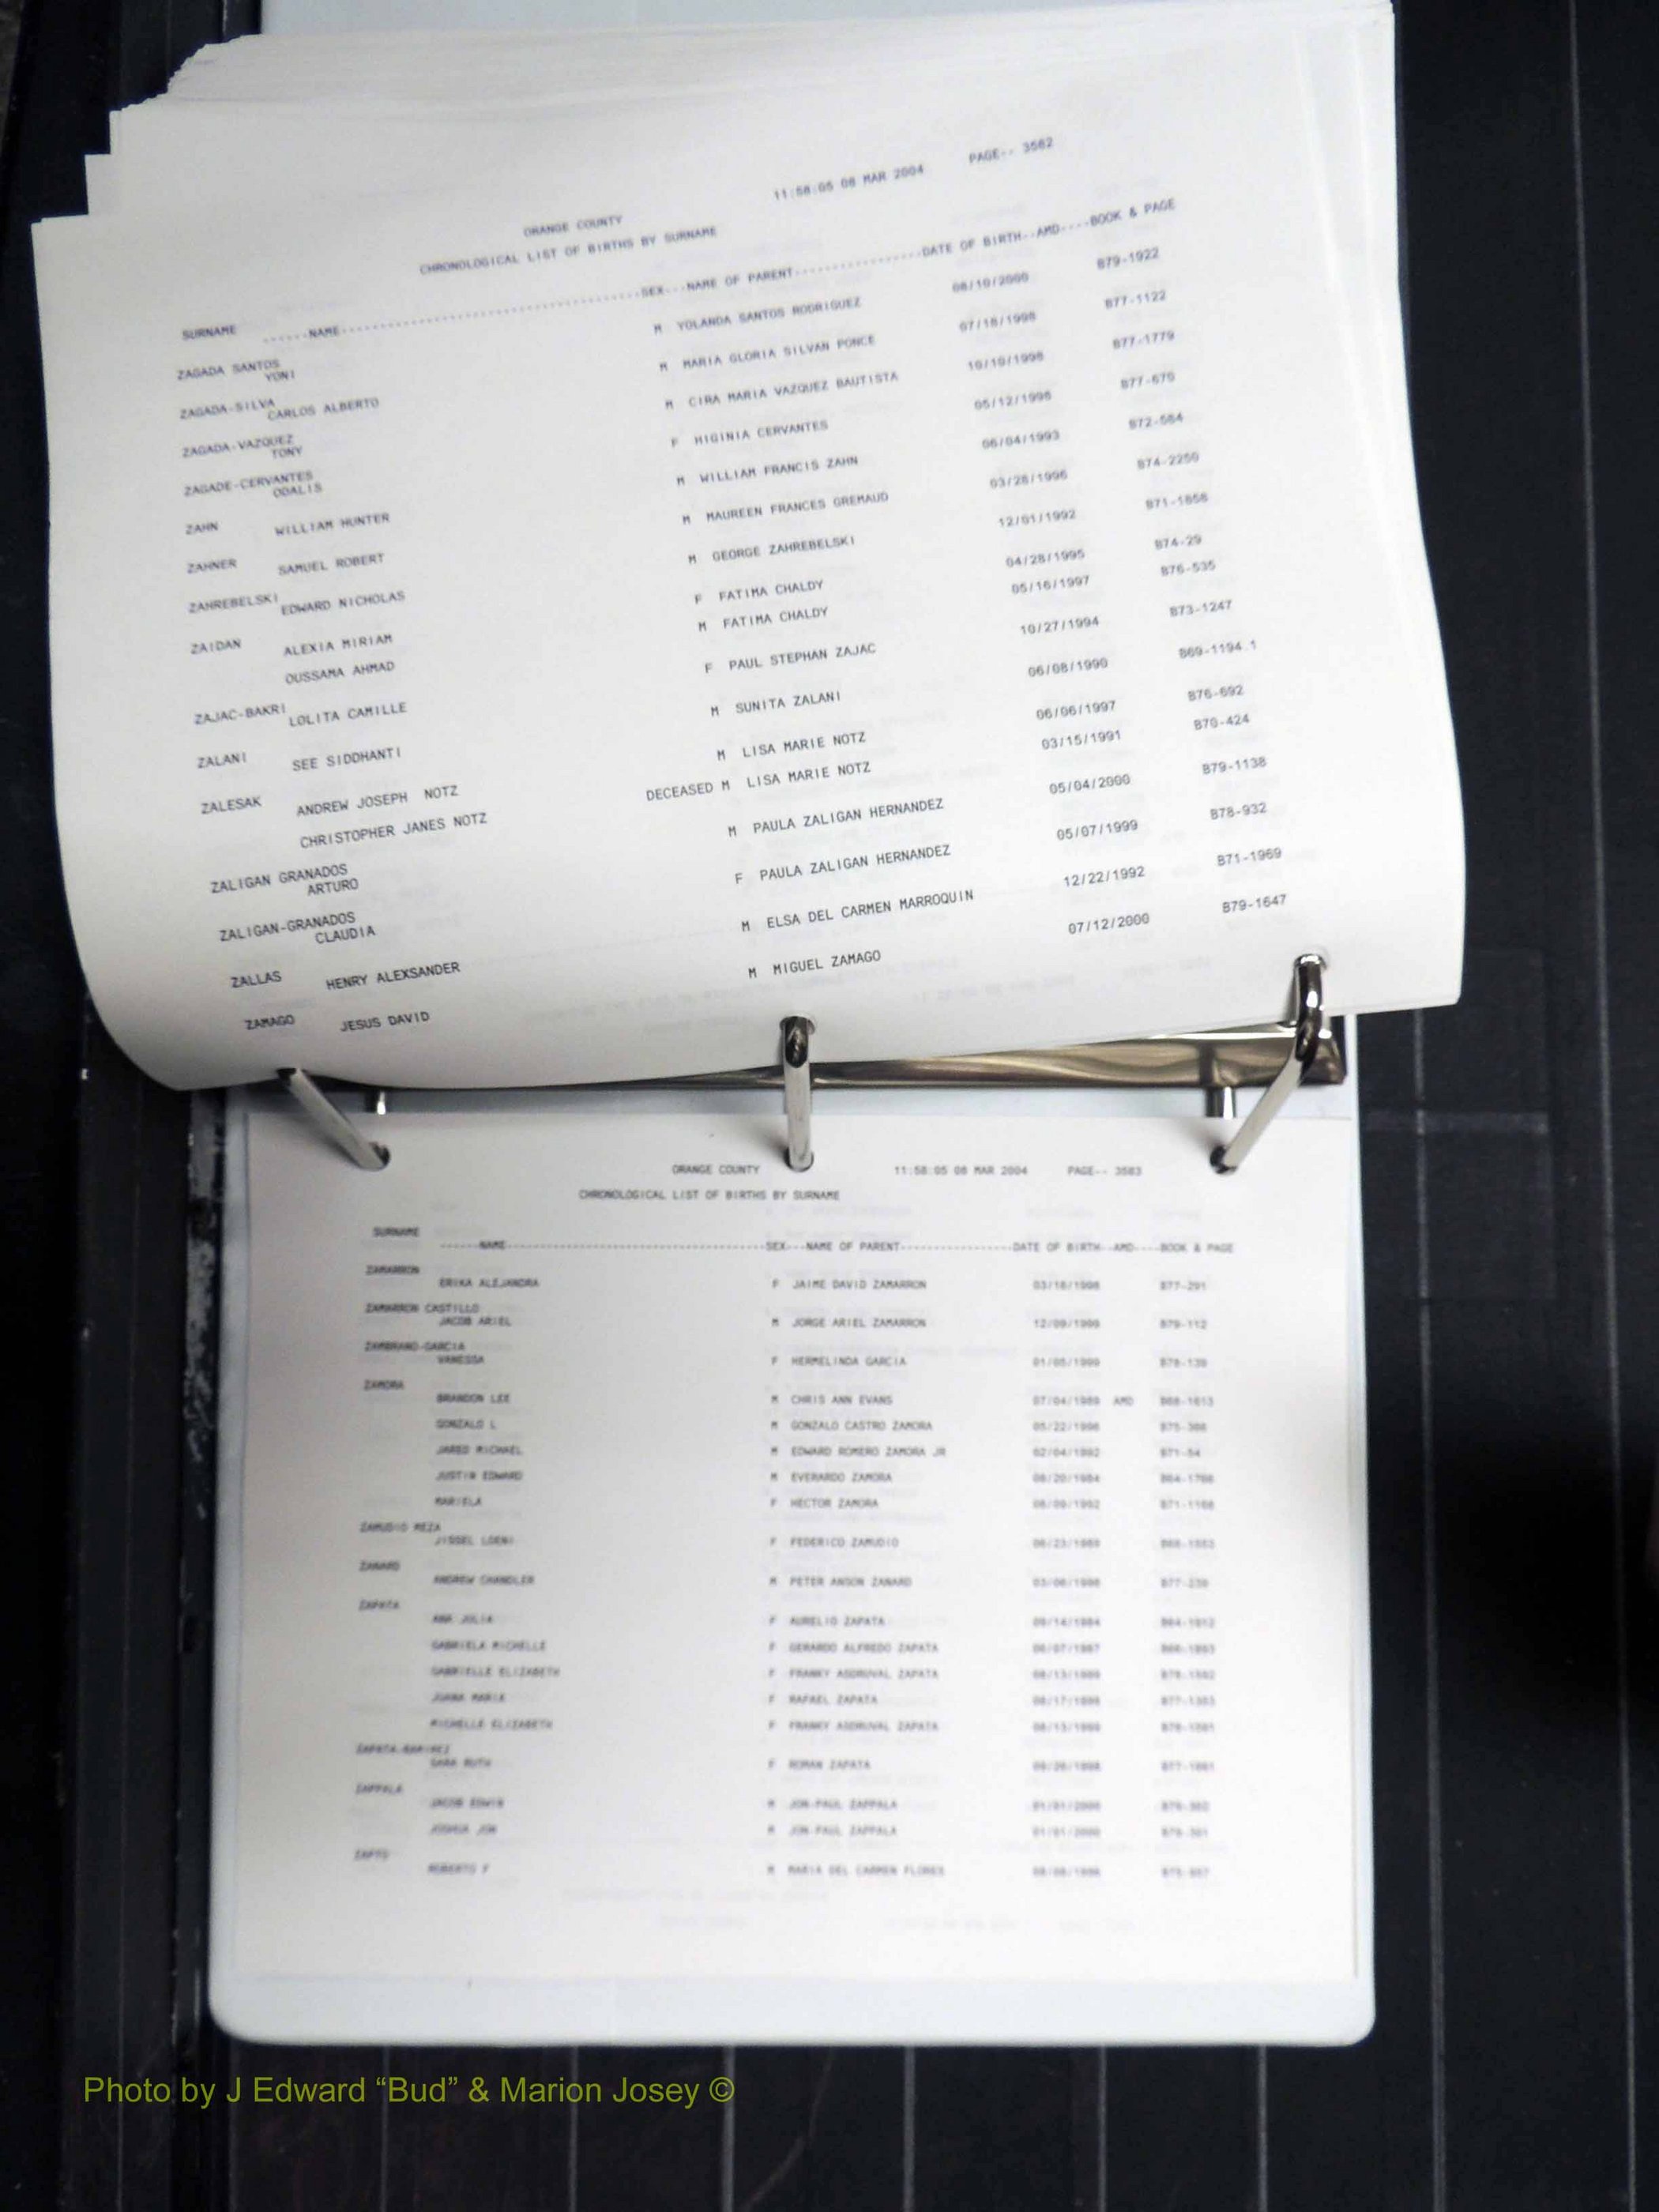 11:58:05 08 MAR 2004 PAGE-- 3582
ORANGE COUNTY
CHRONOLOGICAL LIST OF BIRTHS BY SURNAME
SURNAME
------NAME----------------------------------------SEX---NAME OF PARENT-----------------DATE OF BIRTH--AMD----BOOK & PAGE
ZAGADA SANTOS
YONI M YOLANDA SANTOS RODRIGUEZ 08/10/2000 B79-1922
ZAGADA-SILVA
CARLOS ALBERTO M MARIA GLORIA SILVAN PONCE 07/18/1998 B77-1122
ZAGADA-VAZQUEZ
TONY M CIRA MARIA VAZQUEZ BAUTISTA 10/10/1998 B77-1779
ZAGADE-CERVANTES
ODALIS F HIGINIA CERVANTES 05/12/1998 B77-679
ZAHN
WILLIAM HUNTER M WILLIAM FRANCIS ZAHN 06/04/1993 B72-584
ZAHNER
SAMUEL ROBERT M MAUREEN FRANCES GREMAUD 03/28/1996 B74-2250
ZAHREBELSKI
EDWARD NICHOLAS M GEORGE ZAHREBELSKI 12/01/1992 B71-1858
ZAIDAN
ALEXIA MIRIAM F FATIMA CHALDY 04/28/1995 B74-29
OUSSAMA AHMAD M FATIMA CHALDY 05/16/1997 B76-535
ZAJAC-BAKRI
LOLITA CAMILLE F PAUL STEPHAN ZAJAC 10/27/1994 B73-1247
ZALANI
SEE SIDDHANTI M SUNITA ZALANI 06/08/1990 B69-1194.1
ZALESAK
ANDREW JOSEPH NOTZ M LISA MARIE NOTZ 06/06/1997 B76-692
CHRISTOPHER JANES NOTZ DECEASED M LISA MARIE NOTZ 03/15/1991 B70-424
ZALIGAN GRANADOS
ARTURO M PAULA ZALIGAN HERNANDEZ 05/04/2000 B79-1138
ZALIGAN-GRANADOS
CLAUDIA F PAULA ZALIGAN HERNANDEZ 05/07/1999 B78-932
ZALLAS
HENRY ALEXSANDER M ELSA DEL CARMEN MARROQUIN 12/22/1992 B71-1969
ZAMAGO
JESUS DAVID M MIGUEL ZAMAGO 07/12/2000 B79-1647
ORANGE COUNTY 11:58:05 08 MAR 2004 PAGE-- 3583
CHRONOLOGICAL LIST OF BIRTHS BY SURNAME
SURNAME
------NAME----------------------------------------SEX---NAME OF PARENT-----------------DATE OF BIRTH--AMD----BOOK & PAGE
ZAMARRON
ERIKA ALEJANDRA F JAIME DAVID ZAMARRON 03/18/1998 B77-291
ZAMARRON CASTILLO
JACOB ARIEL M JORGE ARIEL ZAMARRON 12/09/1999 B79-112
ZAMBRANO-GARCIA
VANESSA F HERMELINDA GARCIA 01/05/1999
ZAMORA
BRANDON LEE M CHRIS ANN EVANS 07/04/1989 AMD B68-1613
GONZALO L M GONZALO CASTRO ZAMORA 05/22/1996
JARED MICHAEL M EDWARD ROMERO ZAMORA JR 02/04/1992 B71-54
JUSTIN EDWARD M EVERARDO ZAMORA
MARIELA F HECTOR ZAMORA
ZAMUDIO MEZA
F FEDERICO ZAMUDIO
ZANARD
ANDREW CHANDLER M PETER ANSON ZANARD
ZAPATA
ANA JULIA F AURELIO ZAPATA
GABRIELA MICHELLE F GERARDO ALFREDO ZAPATA
GABRIELLE ELIZABETH F FRANKY ASDRUVAL ZAPATA
JUANA MARIA F RAFAEL ZAPATA
MICHELLE ELIZABETH F FRANKY ASDRUVAL ZAPATA
ZAPATA-RAMIREZ
SARA RUTH F ROMAN ZAPATA
ZAPPALA
JACOB EDWIN M JON-PAUL ZAPPALA 01/01/2000
JOSHUA JON M JON-PAUL ZAPPALA 01/01/2000
ROBERTO F M MARIA DEL CARMEN FLORES
Photo by J Edward “Bud” & Marion Josey ©